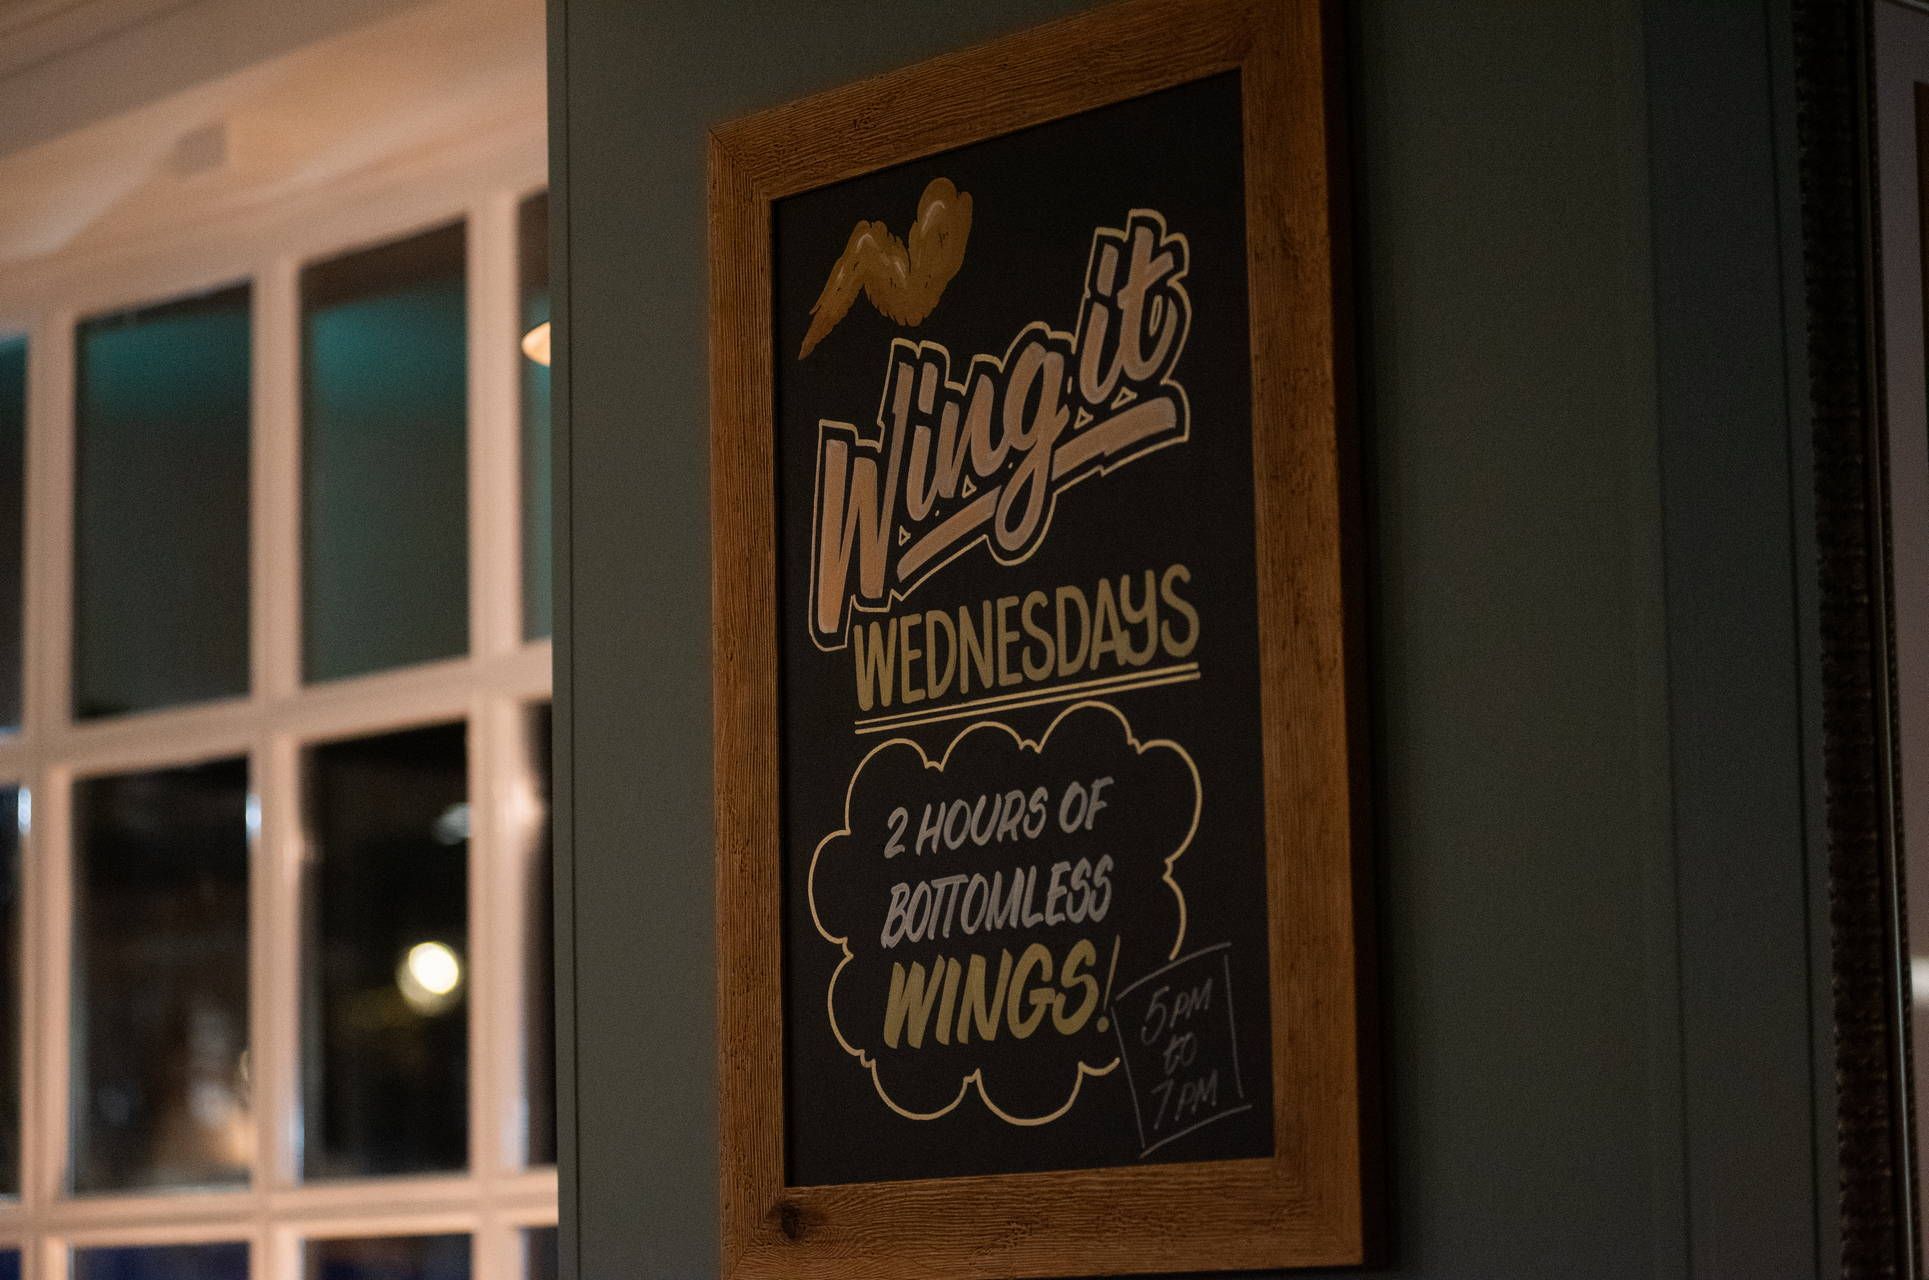 Wing it
WEDNESDAYS
2 HOURS OF
BOTTOMLESS
WINGS!
5PM
to
7PM